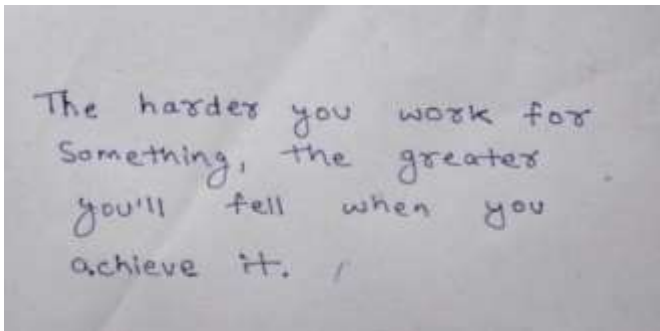 The harder you work for
Something, the greater
you'll fell when you
achieve it.